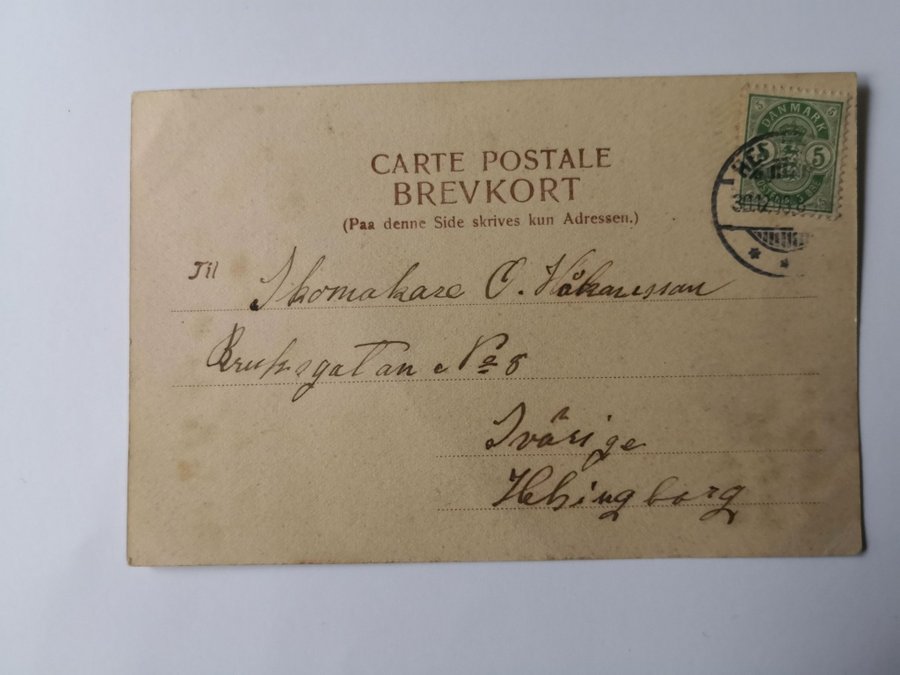 CARTE POSTALE
BREVKORT
(Paa denne Side skrives kun Adressen.)
DANMARK
5 5
5
HES
30.12.99.6
Til Skomakare O. Håkansson
Bruksgatan No 8
Svärige
Helsingborg